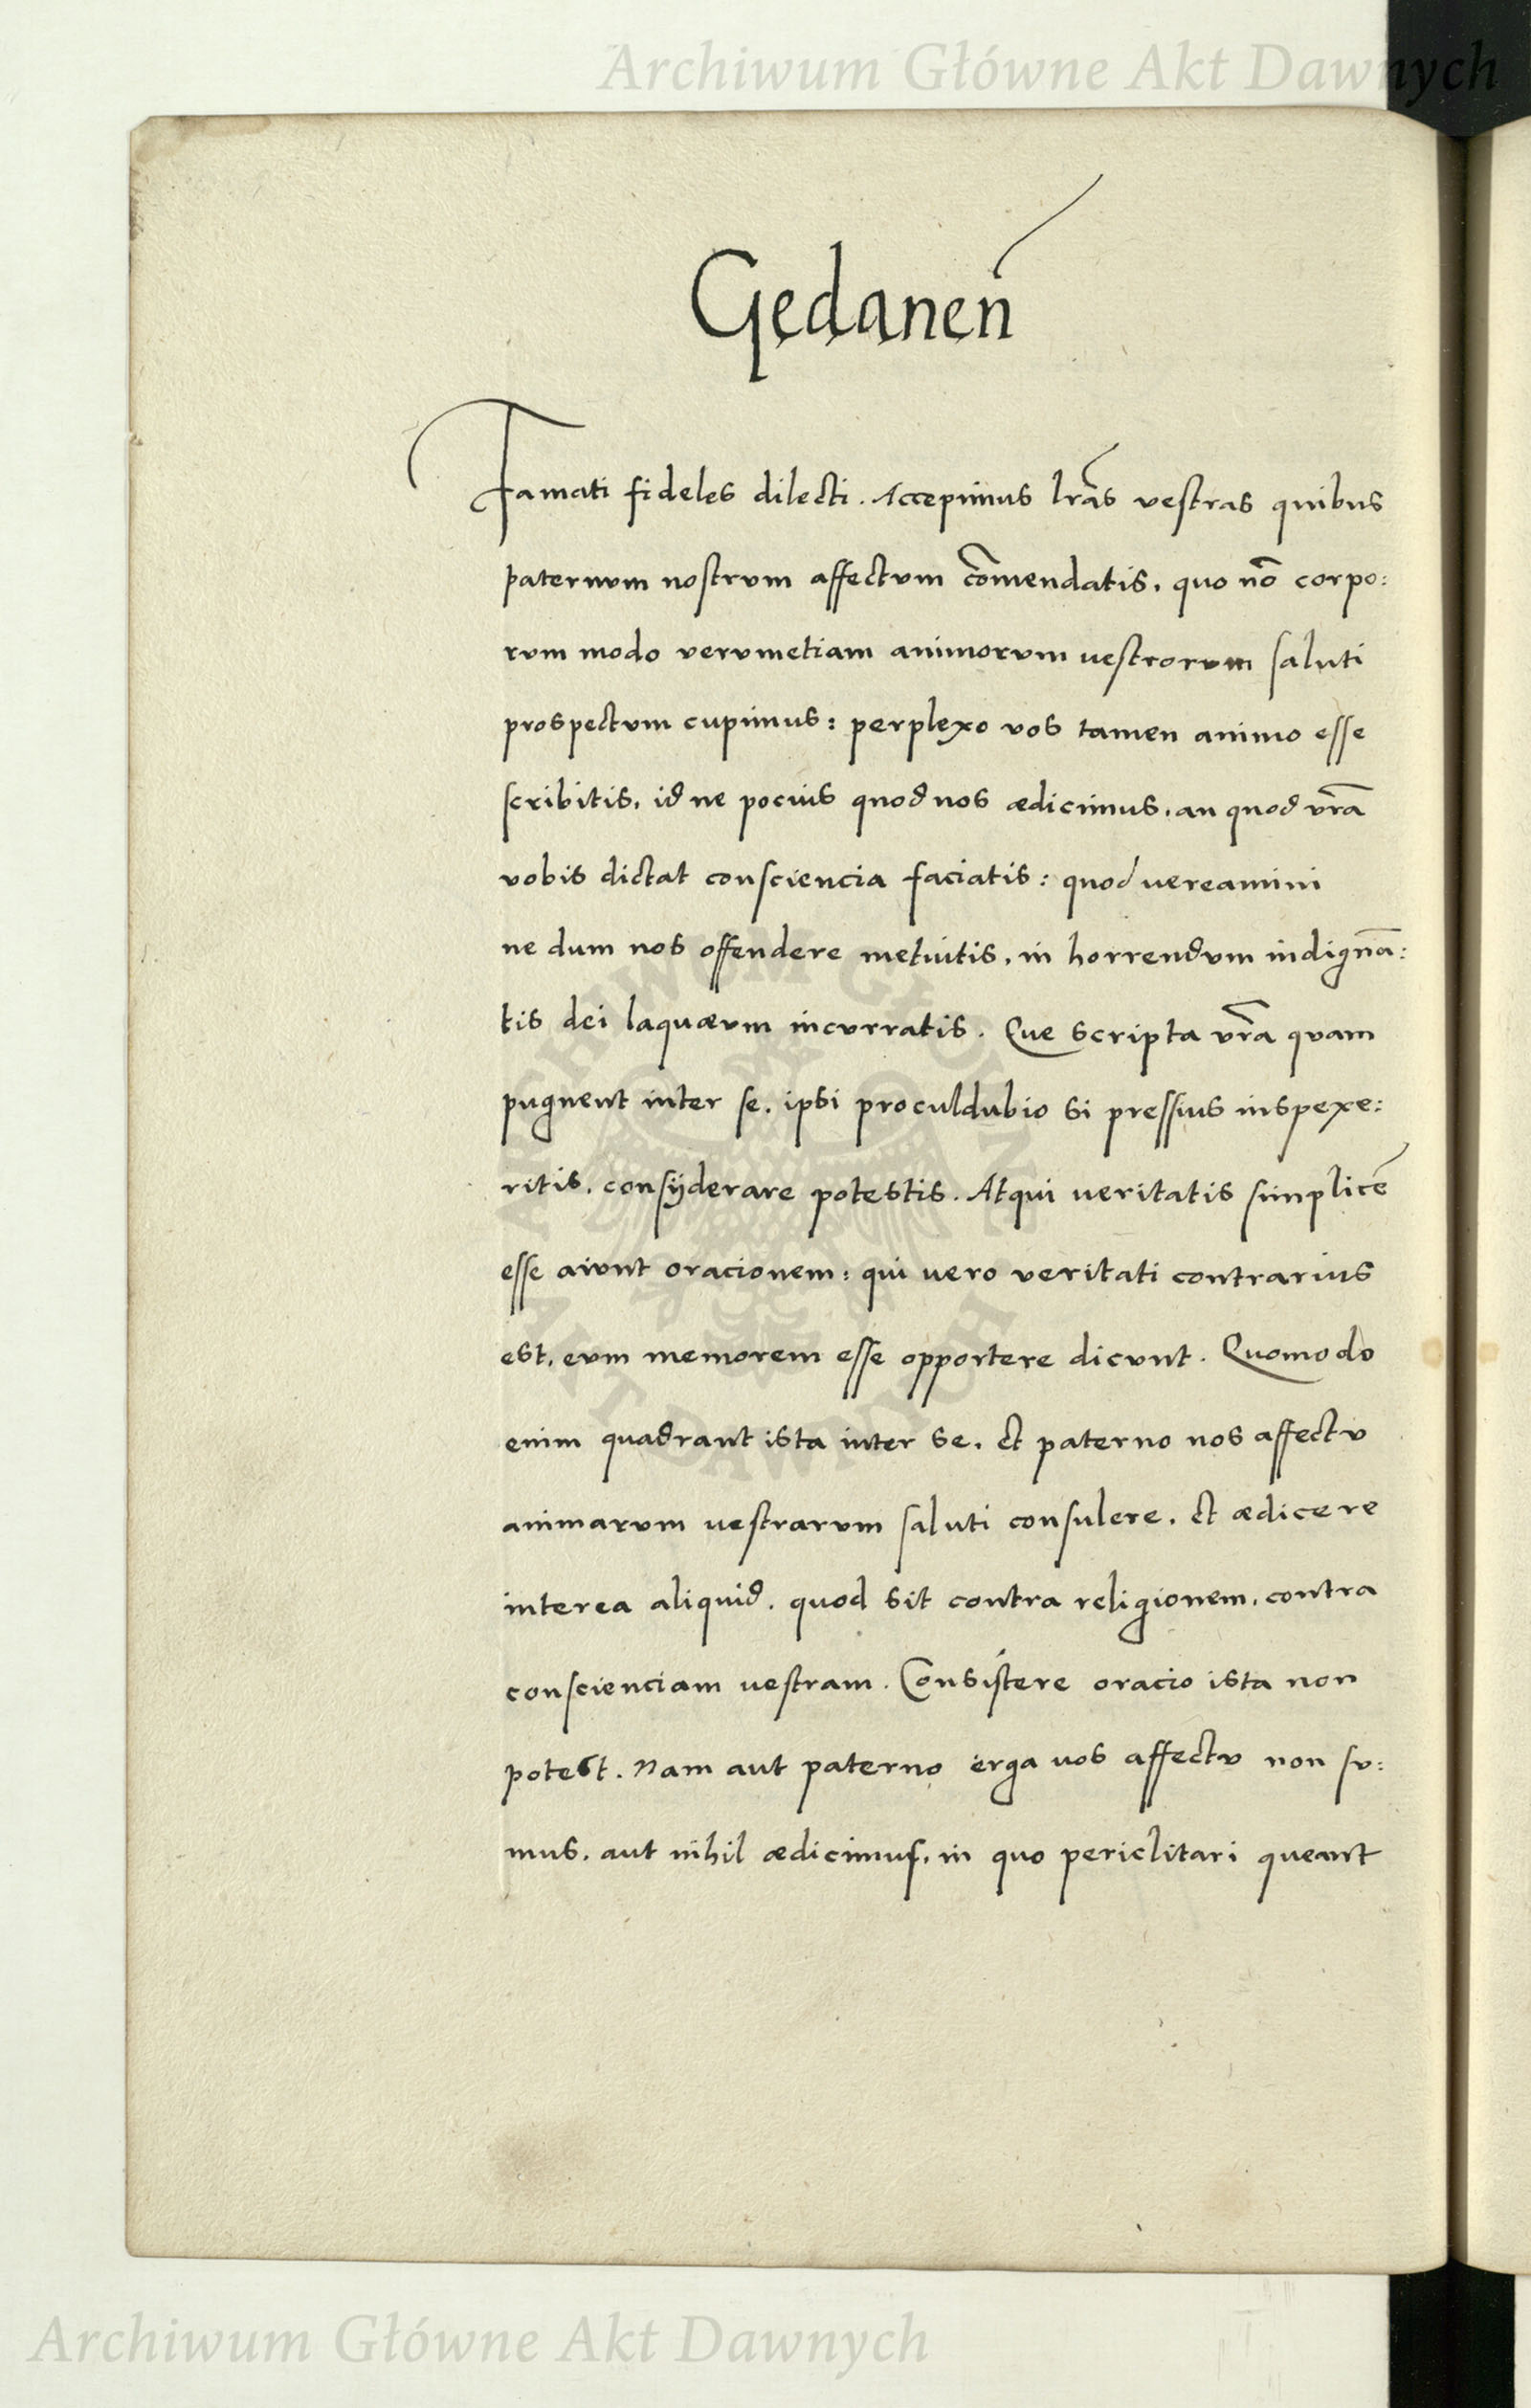 Archiwum Główne Akt Dawnych
Gedanen̄
Famati fideles dilecti. Accepimus l̄ras vestras quibus
paternvm nostrvm affectvm com̄endatis, quo nō corpo:
rvm modo vervmetiam animorvm vestrorvm saluti
prospectvm cupimus: perplexo vos tamen animo esse
scribitis, id ne pocius quod nos ædicimus, an quod vr̄a
vobis dictat consciencia faciatis: quod vereamini
ne dum nos offendere metuitis, in horrendvm indignā:
tis dei laquævm incvrratis. Que scripta vr̄a qvam
pugnent inter se, ipsi proculdubio si pressius inspexe:
ritis, consyderare potestis. Atqui veritatis simplicē
esse aivnt oracionem: qui vero veritati contrarius
est, evm memorem esse opportere dicvnt. Quomodo
enim quadrant ista inter se, et paterno nos affectv
animarvm vestrarvm saluti consulere, et ædicere
interea aliquid, quod sit contra religionem, contra
conscienciam vestram. Consistere oracio ista non
potest. Nam avt paterno erga vos affectv non sv:
mus, avt nihil ædicimus, in quo periclitari queant
ARCHIWUM GŁÓWNE
AKT DAWNYCH
Archiwum Główne Akt Dawnych